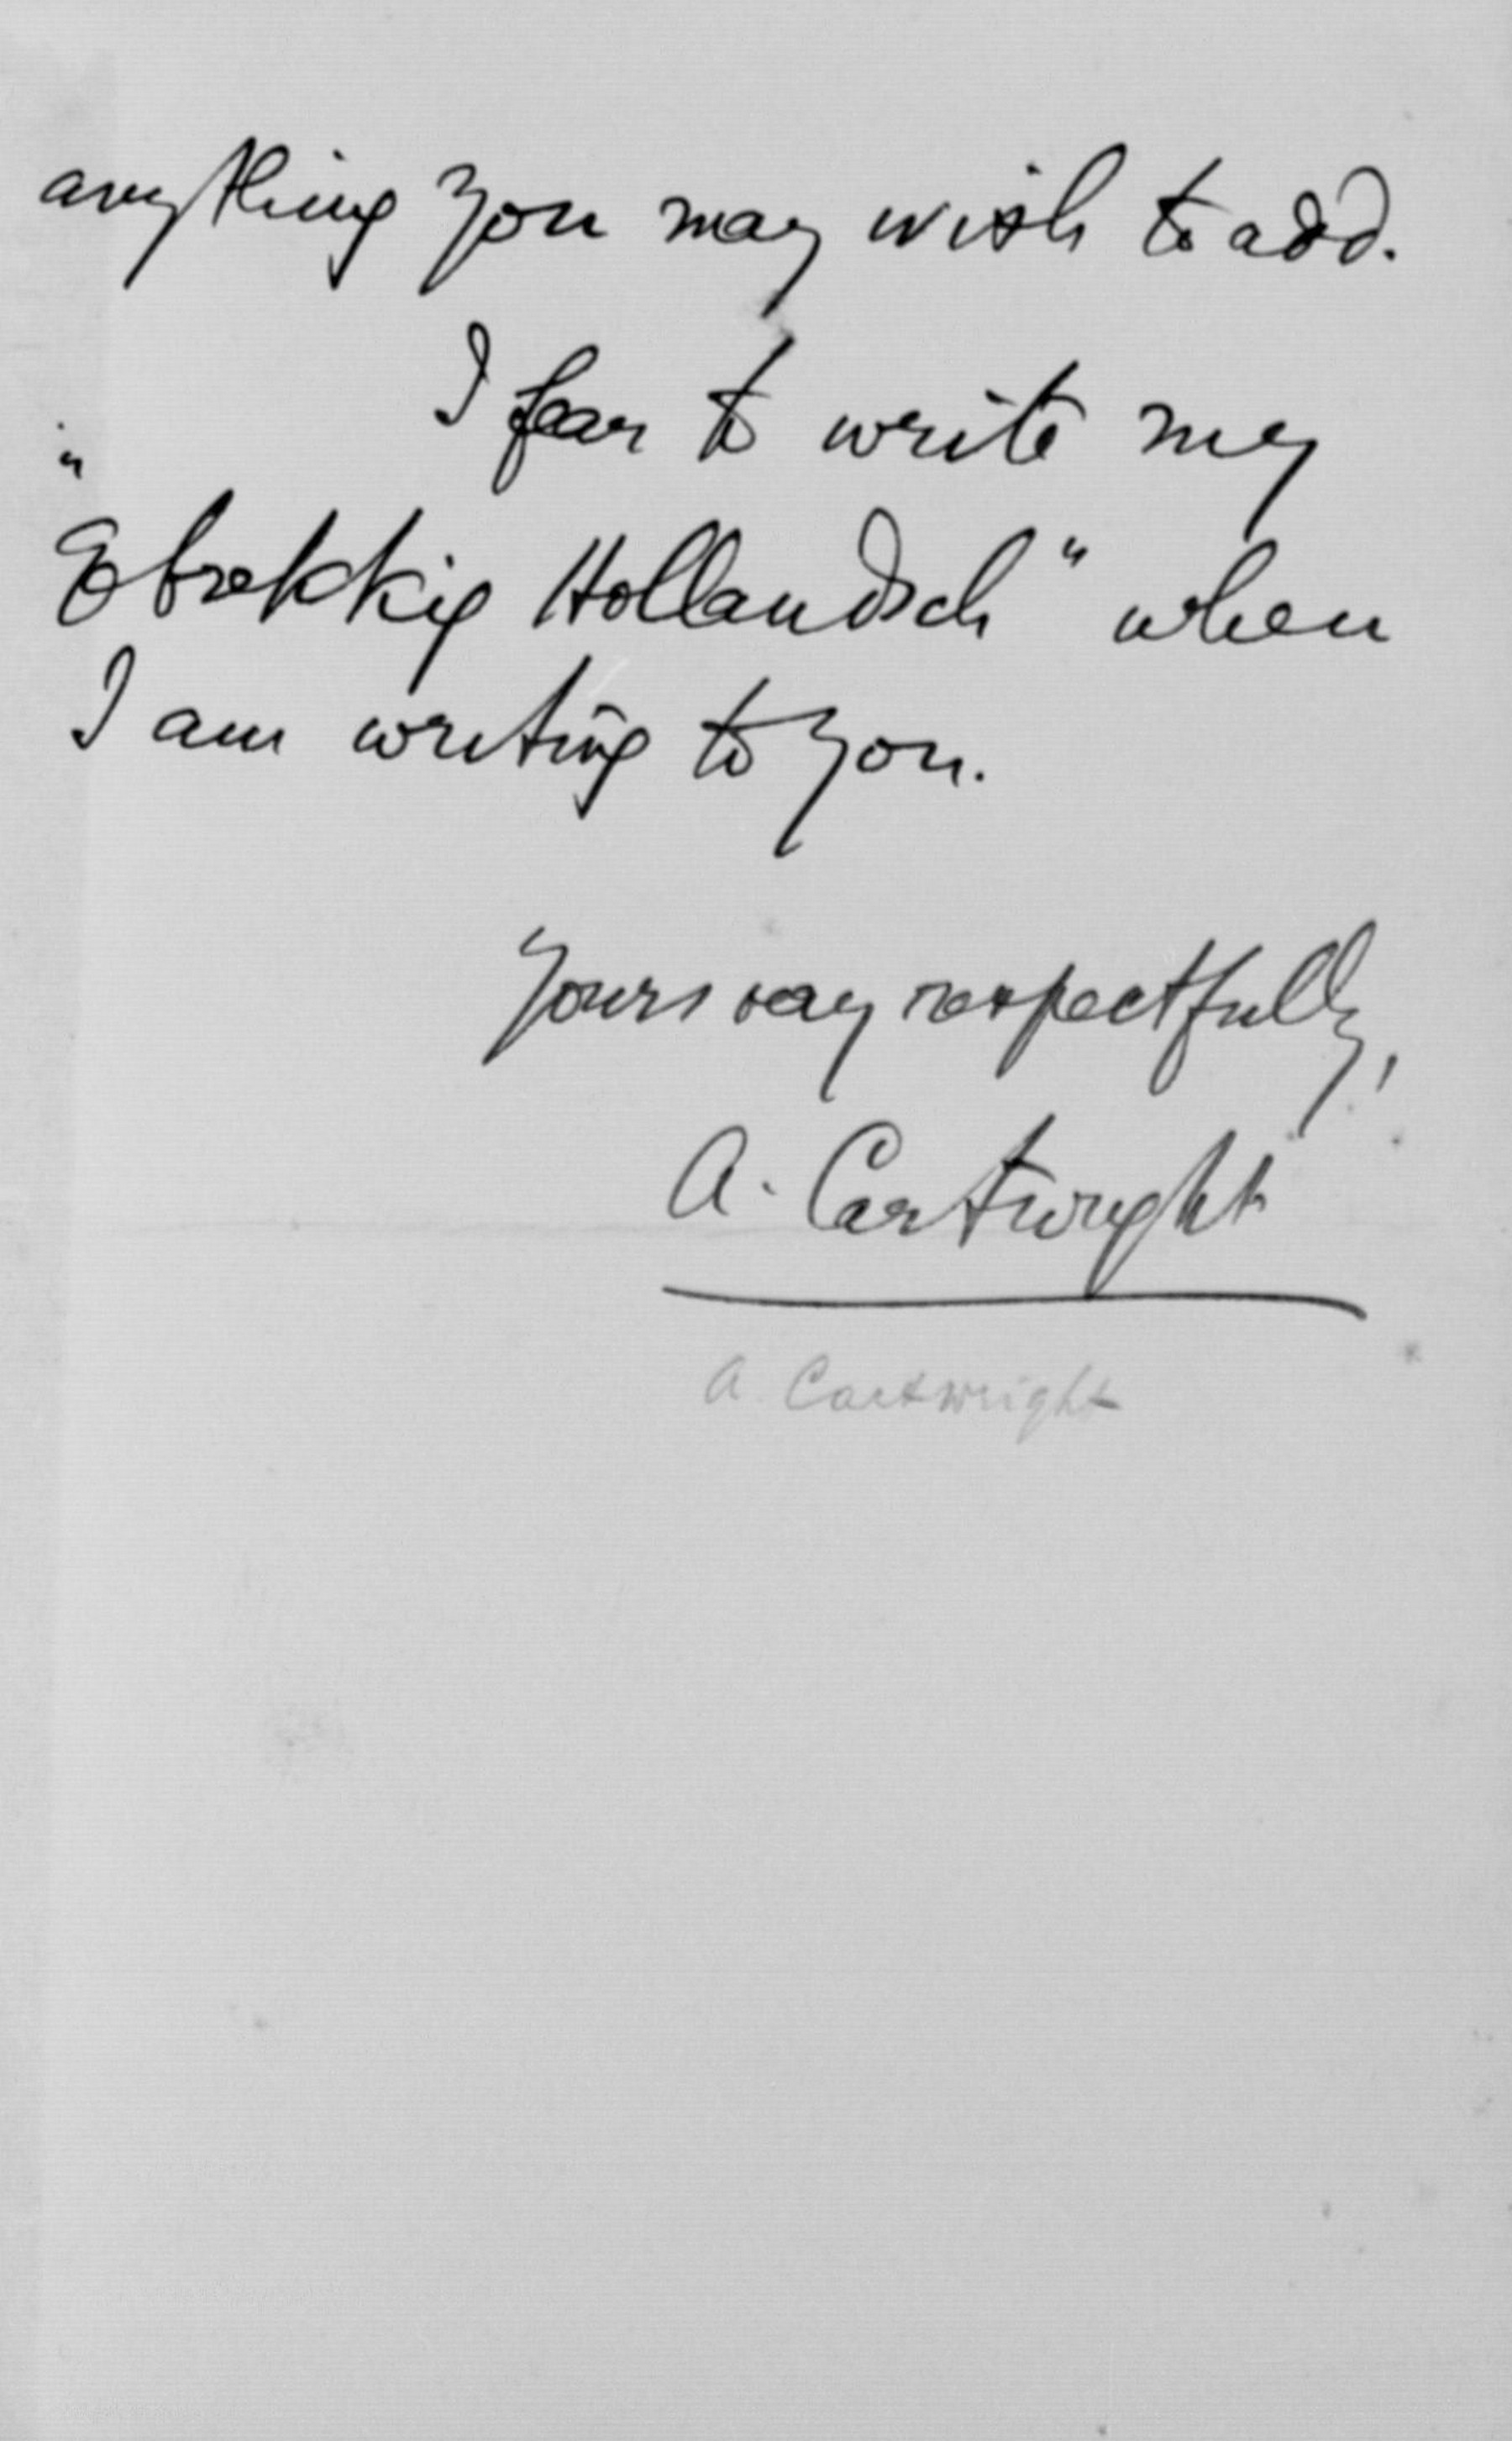 anything you may wish to add.
I fear to write my
"Gebrekkig Hollandsch" when
I am writing to you.
Yours very respectfully,
A. Cartwright
A. Cartwright